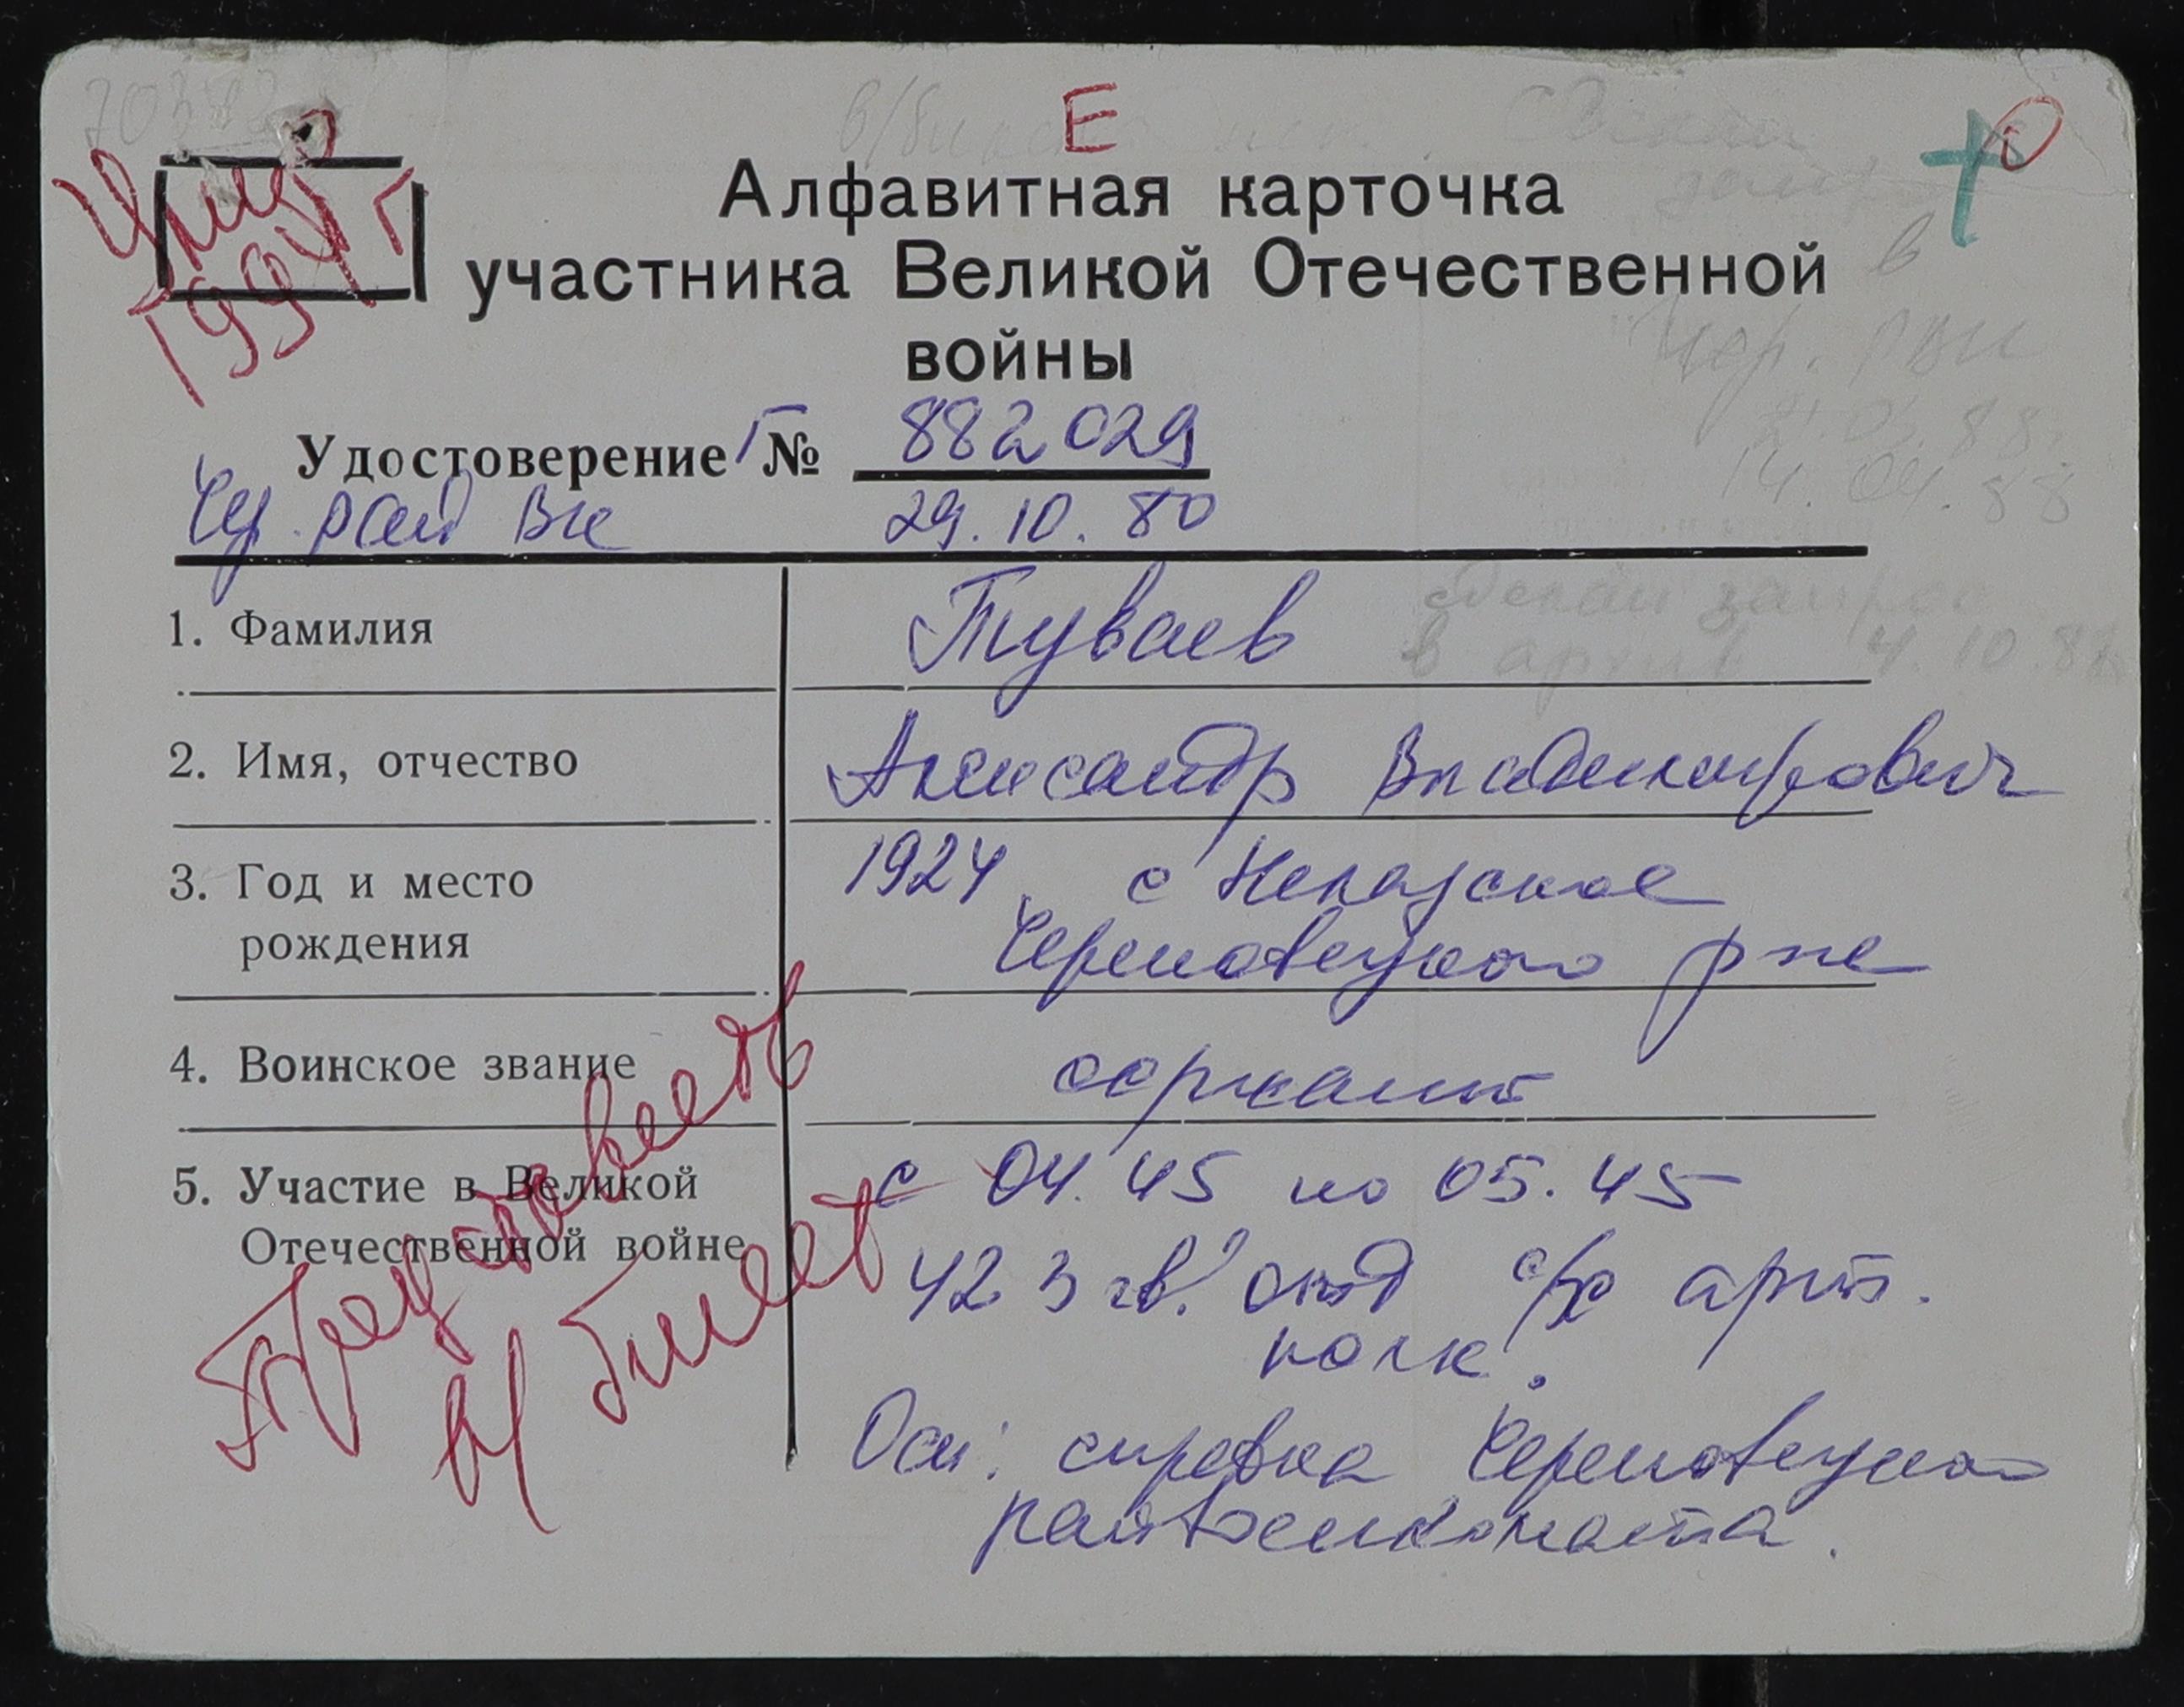 Е
Умер
1994 г
Алфавитная карточка
участника Великой Отечественной
войны
Удостоверение Г № 882029
Чер. рай ВК 29.10.80
Чер. РВК
14.04.88
1. Фамилия Туваев
сделан запрос
в архив 4.10.87
2. Имя, отчество Александр Владимирович
3. Год и место 1924, с
рождения Череповецкого р-на
4. Воинское звание сержант
5. Участие в Великой с 04.45 по 05.45
Отечественной войне 423 гв. с/х арт.
полк.
Осн: справка Череповецкого
райвоенкомата.